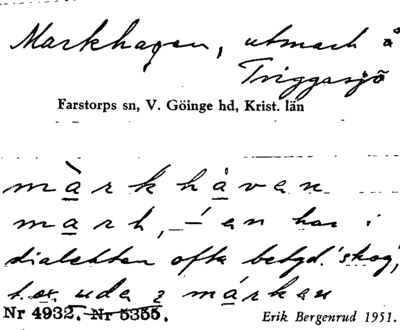 Markhagen, utmark å
Tviggasjö
Farstorps sn, V. Göinge hd, Krist. län
màrkhåvan
mark, -en har i
dialekten ofta betyd. 'skog',
t.ex. uda i márken
Nr 4932. Nr 5355.
Erik Bergenrud 1951.